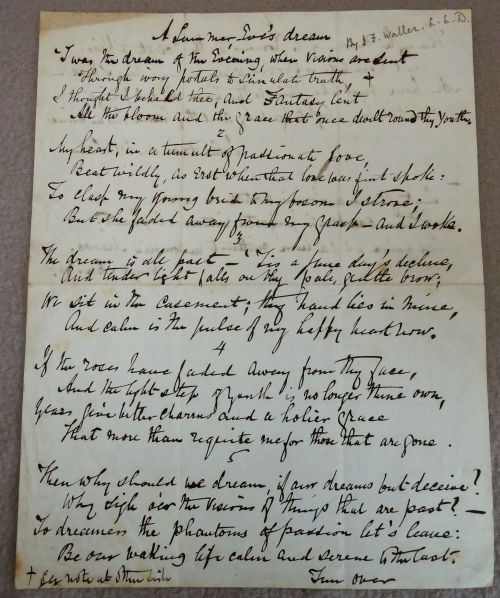 A Summer Eve's dream
By J. F. Waller. L.L.D.
'Twas the dream of the Evening, when Visions are sent
Through ivory portals to simulate truth +
I thought I beheld thee, and Fantasy lent
All the bloom and the grace that once dwelt round thy youth.
2
My heart, in a tumult of passionate love,
Beat wildly, as erst when that love was first spoke:
To clasp my young bride to my bosom I strove;
But she faded away from my grasp — and I woke.
3
The dream is all past — 'Tis a June day's decline,
And tender light falls on thy pale, gentle brow;
We sit in the casement; thy hand lies in mine,
And calm is the pulse of my happy heart now.
4
If the roses have faded away from thy face,
And the light step of youth is no longer thine own,
Years give better charms and a holier grace
That more than requite me for those that are gone.
5
Then why should we dream, if our dreams but deceive?
Why sigh o'er the visions of things that are past? —
To dreamers the phantoms of passion let's leave:
Be our waking life calm and serene to the last.
+ see note at other side
Turn over